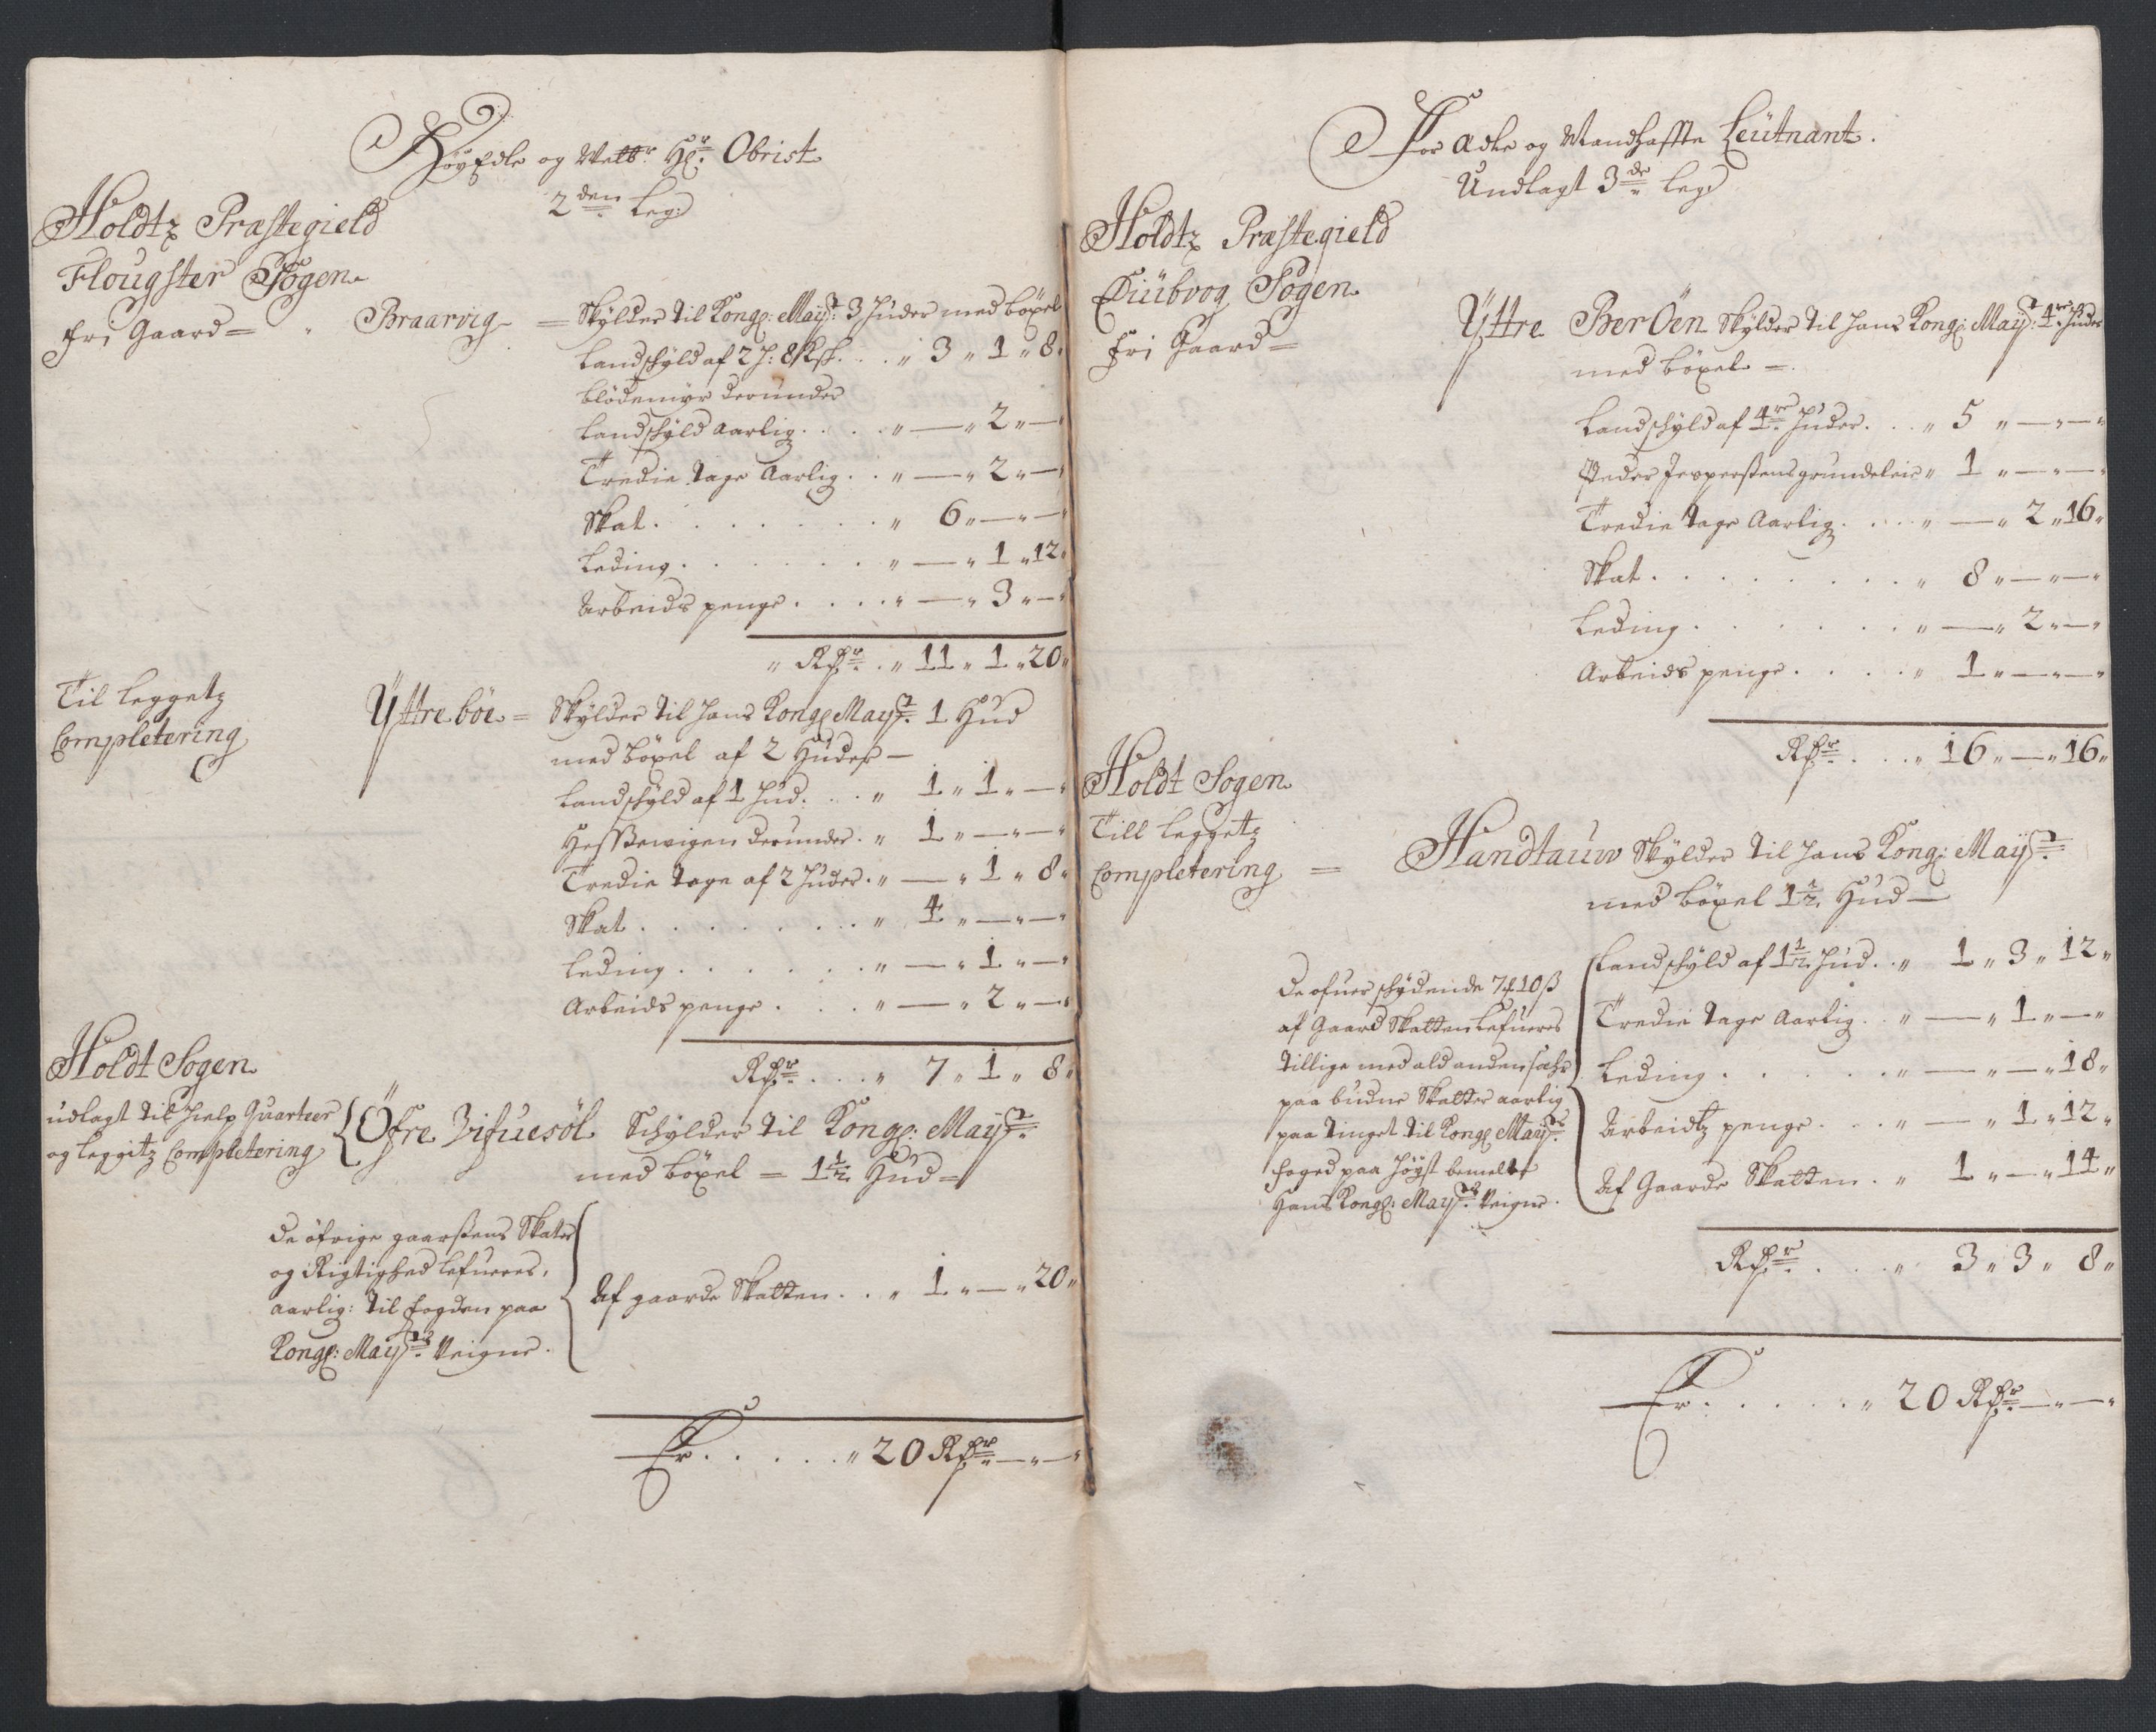 HöyEdle og Welbr. Hr. Obrist
2den Leg
Holdtz Præstegield
Flougster Sogen
Fri Gaard = Braarvig = Skylder til Kongl: Mayt: 3 Huder med böxel
Landskyld af 2 H: 8 ksk. . . " 3 " 1 " 8 "
Blödemyr derunder
Landskyld Aarlig . . . . " — " 2 " —
Tredie Tage Aarlig . . " — " 2 " —
Skat . . . . . . . " 6 " — " —
Leding . . . . . . " — " 1 " 12 "
Arbeids penge . . . . " — " 3 " —
" Rdr. . " 11 " 1 " 20 "
Til Leggetz
Completering
Ÿttre böe = Skylder til Hans Kongl Mayt. 1 Hud
med böxel af 2 Huder —
Landskyld af 1 Hud. . . " 1 " 1 " —
derunder . " 1 " — " —
Tredie Tage af 2 Huder . " — " 1 " 8 "
Skat . . . . . . . " 4 " — " —
Leding . . . . . . " — " 1 " —
Arbeids penge . . . " — " 2 " —
Rdr. . . . " 7 " 1 " 8 "
Holdt Sogen
udlagt til Hielp Quarteer
og Leggitz Completering
Öfre Vifuesöl Schylder til Kongl: Mayt.
med böxel = 1 1/2 Hud =
De öfrige gaarßens Skater
og Rigtighed Lefueres,
aarlig: til fogden paa
Kongl: Mayts. Veigne.
Af gaarde Skatten . . " 1 " — " 20 "
Er . . . . . " 20 Rdr. — " —
For Adle og Mandhaffte Leütnant.
Undlagt 3de Leg
Holdtz Præstegield
Diübvog Sogen
Fri Gaard =
Ÿttre BerÖen Skylder til Hans Kongl: Mayt: 4re Huder
med böxel =
Landskyld af 4re Huder. . . " 5 " — " — "
Peder Jespersens grundeleie " 1 " — " — "
Tredie Tage Aarlig . . . . " — " 2 " 16 "
Skat . . . . . . . . " 8 " — " — "
Leding . . . . . . . " — " 2 " — "
Arbeids penge . . . . . " 1 " — " — "
Rdr. . . . " 16 " — " 16 "
Holdt Sogen
Till Leggetz
Completering =
Handtauw Skylder til Hans Kongl: Maÿt.
med böxel 1 1/2 Hud —
De ofuer skydende 7 10 ß
af Gaard Skatten Lefueres
tillige med ald anden
paa budne Skatter aarlig
paa Tinget til Kongl Mayts.
foged paa Höyst bemelte
Hans Kongl: Mayts. Veigne.
Landskyld af 1 1/2 Hud. . " 1 " 3 " 12 "
Tredie Tage Aarlig . . " — " 1 " — "
Leding . . . . . . " — " — " 18 "
Arbeidtz penge . . . " — " 1 " 12 "
Af Gaarde Skatten . " 1 " — " 14 "
Rdr. . . . . " 3 " 3 " 8 "
Er . . . . . " 20 Rdr. — " — "